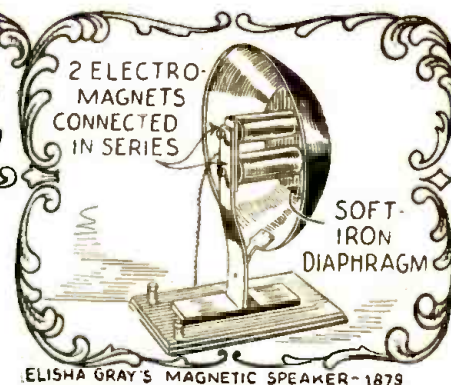 2 ELECTRO-
MAGNETS
CONNECTED
IN SERIES
SOFT-
IRON
DIAPHRAGM
ELISHA GRAY'S MAGNETIC SPEAKER-1879